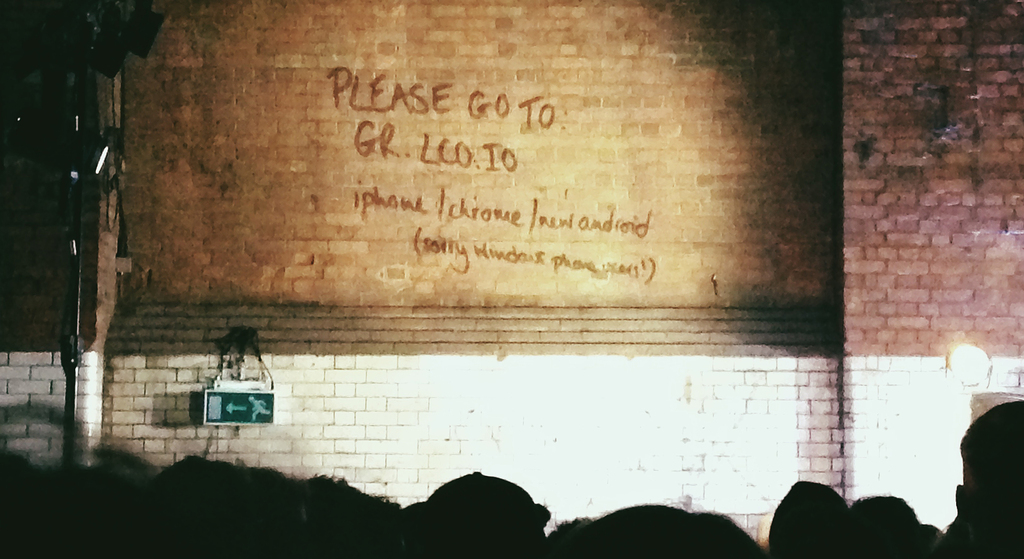 PLEASE GO TO:
GR.LCO.IO
iphone/chrome/new android
(sorry windows phone users!)